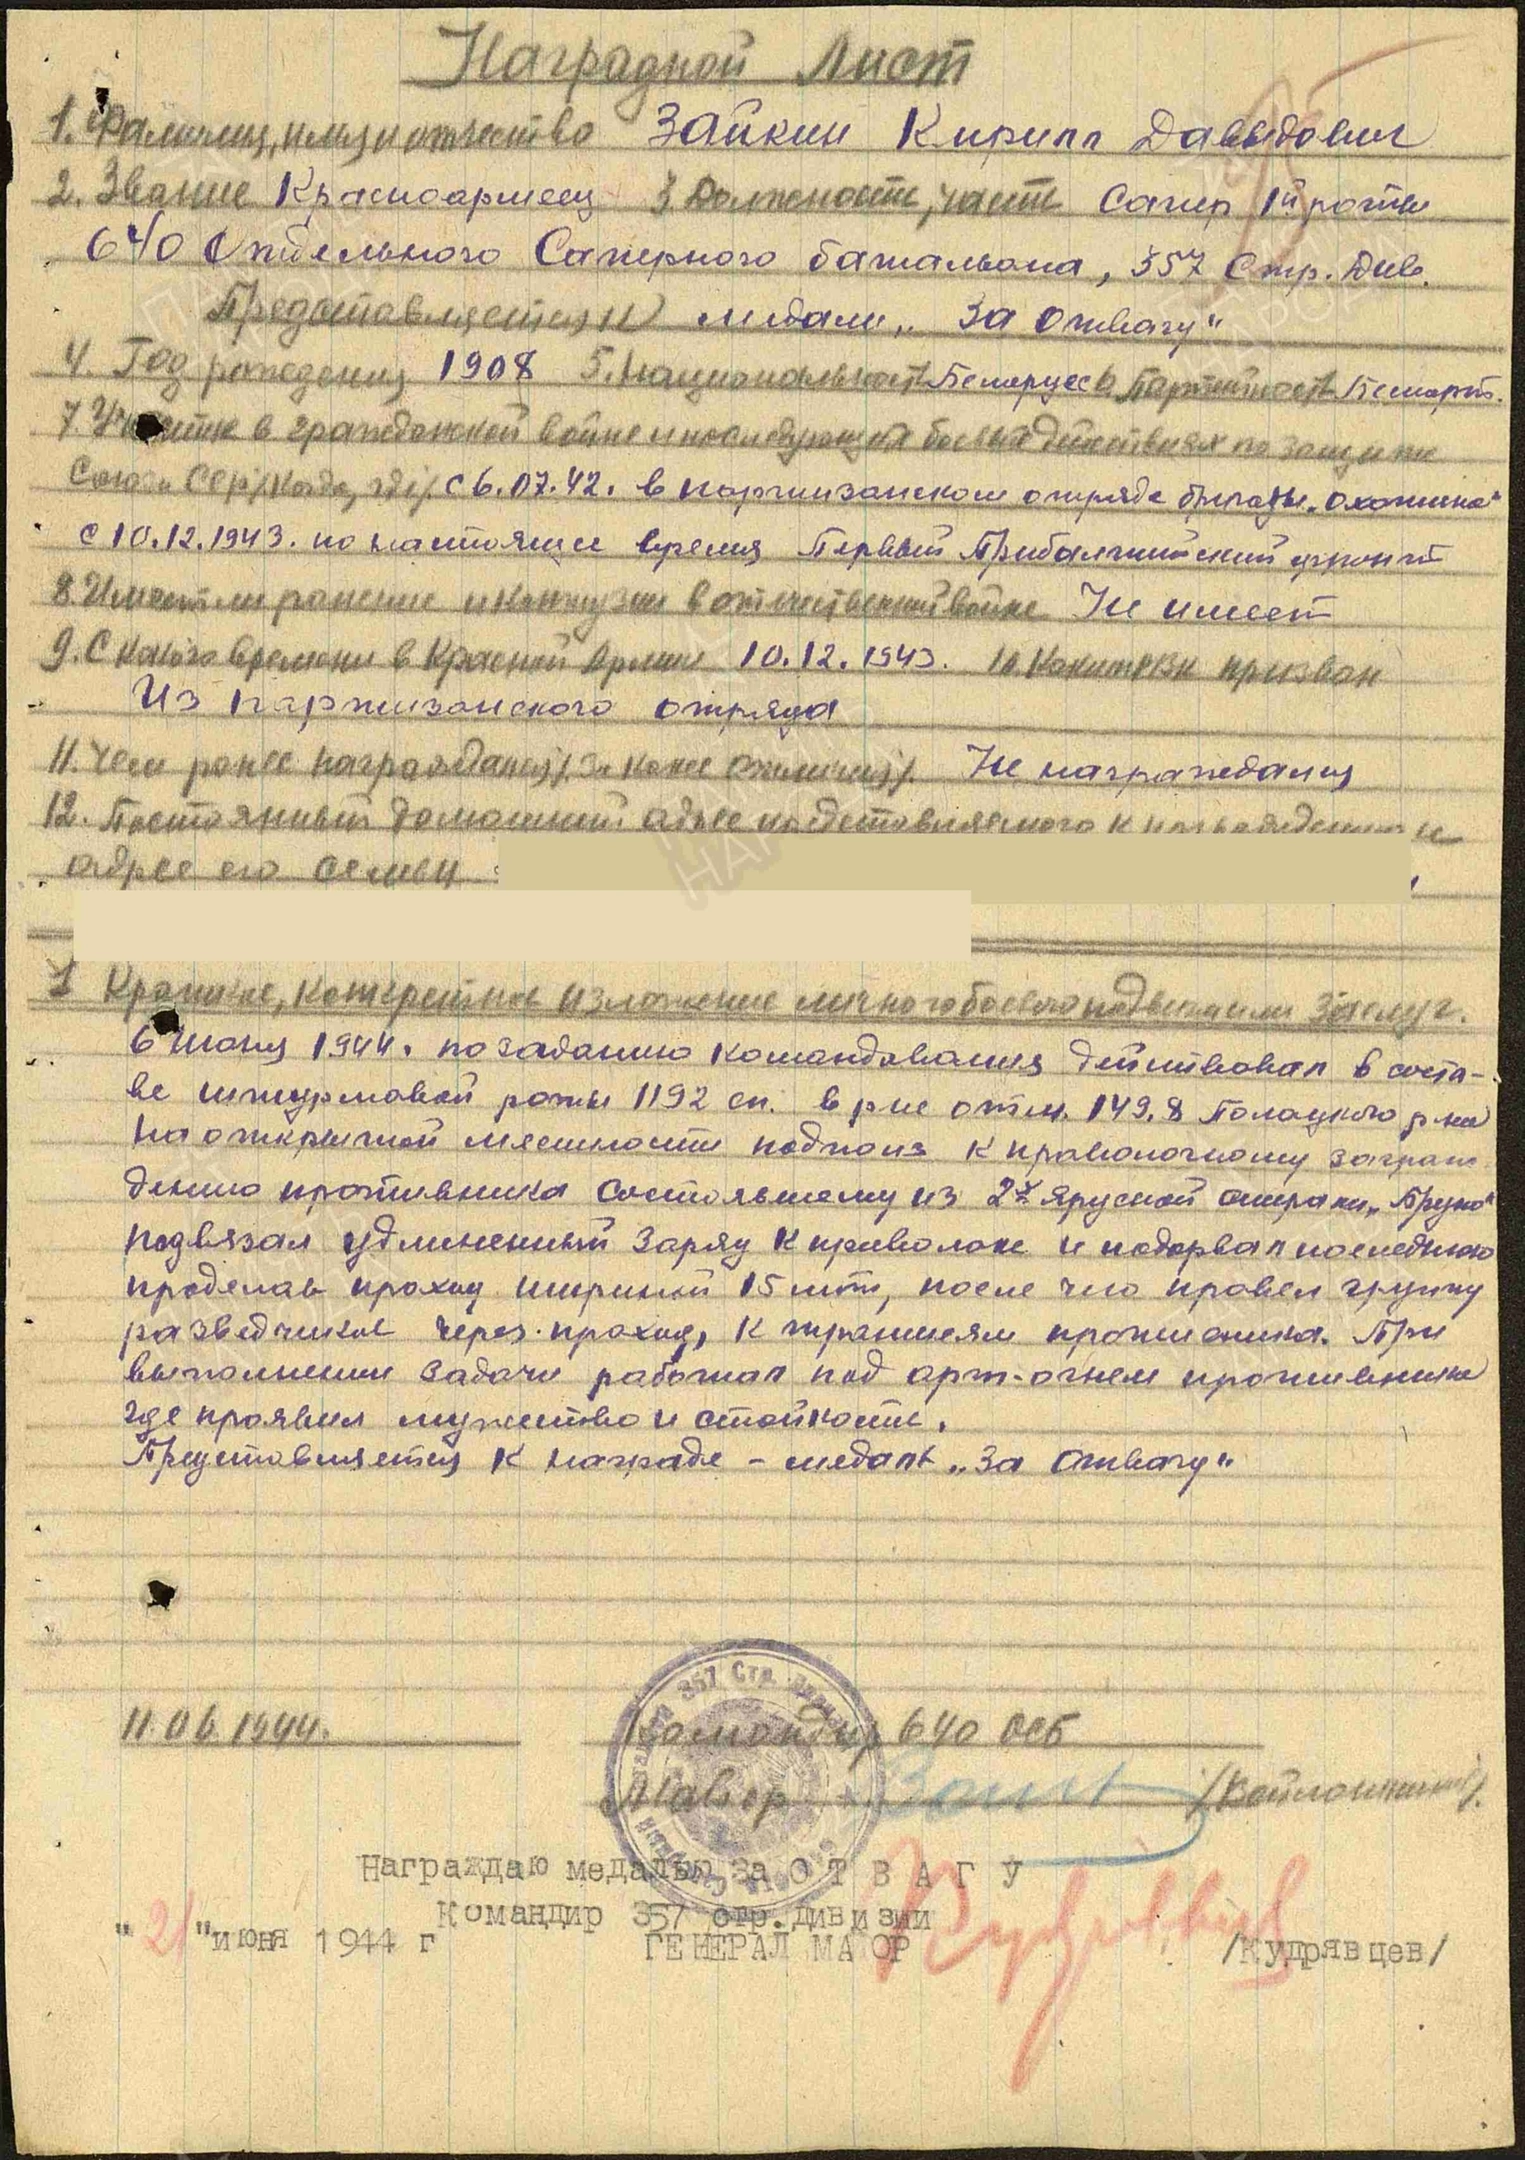 Наградной Лист
1. Фамилия, имя и отчество Зайкин Кирилл Давыдович
2. Звание Красноармеец 3 Должность, часть Сапер 1й роты
640 Отдельного Саперного баталиона, 357 Стр. Див.
Представляется к медали „За отвагу"
4. Год рождения 1908 5. Национальность Белорус 6 Партийность Беспарт.
7. Участие в гражданской войне и последующих боевых действиях по защите
Союза ССР /когда, где/ с 6.07.42. в партизанском отряде бригады „Охотина"
с 10.12.1943. по настоящее время Первый Прибалтийский фронт
8. Имеет ли ранение и контузии в отечественной войне Не имеет
9. С какого времени в Красной Армии 10.12.1943. 10. Каким РВК призван
Из партизанского отряда
11. Чем ранее награждался /за какие отличия/. Не награждался
12. Постоянный домашний адрес представляемого к награждению и
адрес его семьи
1 Краткое, конкретное изложение личного боевого подвига или заслуг.
6 июня 1944. по заданию командования действовал в соста-
ве штурмовой роты 1192 сп. в р-не отм. 149,8 Полоцкого р-на
На открытой местности подполз к проволочному заграж-
дению противника состоявшему из 2х ярусной спирали „Бруно"
подвязал удлиненный заряд к проволоке и подорвал последнюю
проделав проход шириной 15 мт, после чего провел группу
разведчиков через проход, к траншеям противника. При
выполнении задачи работал под арт-огнем противника
где проявил мужество и стойкость.
Представляется к награде - медаль „За Отвагу"
11.06.1944. Командир 640 ОСБ
Майор
Награждаю медалью за О Т В А Г У
Командир 357 стр.дивизии
"21" июня 1944 г ГЕНЕРАЛ МАЙОР /Кудрявцев/